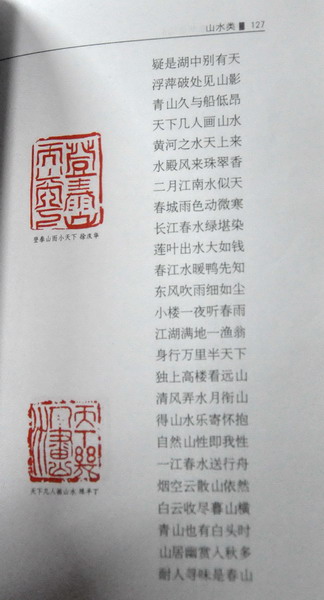 山水类 127
疑是湖中别有天
浮萍破处见山影
青山久与船低昂
天下几人画山水
黄河之水天上来
水殿风来珠翠香
二月江南水似天
春城雨色动微寒
长江春水绿堪染
莲叶出水大如钱
春江水暖鸭先知
东风吹雨细如尘
小楼一夜听春雨
江湖满地一渔翁
身行万里半天下
独上高楼看远山
清风弄水月衔山
得山水乐寄怀抱
自然山性即我性
一江春水送行舟
烟空云散山依然
白云收尽暮山横
青山也有白头时
山居幽赏人秋多
耐人寻味是春山
登泰山而小天下
天下几人画山水 陈半丁
天下几人画山水